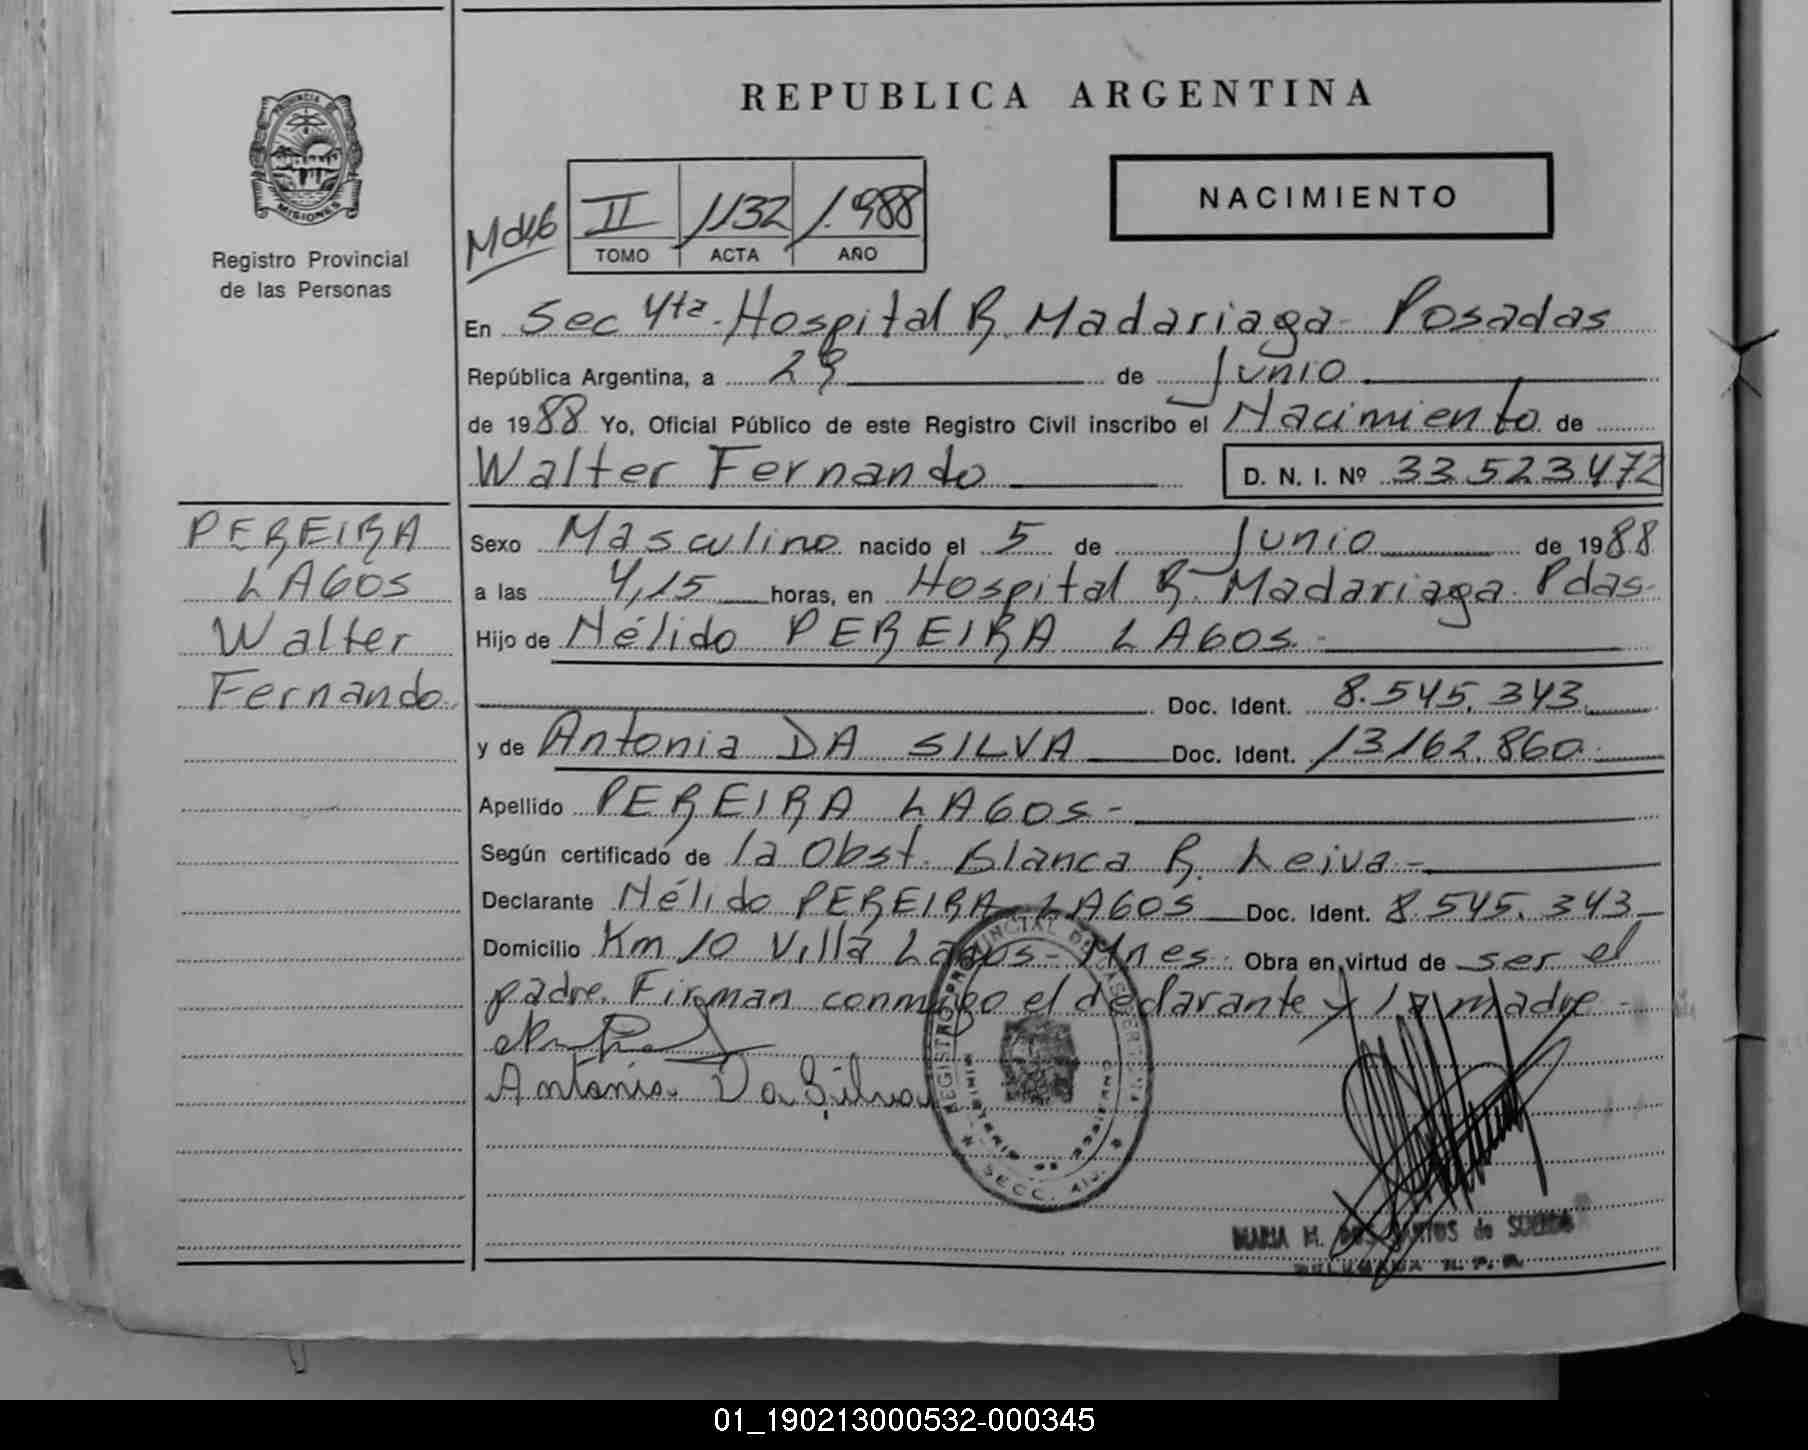 REPUBLICA ARGENTINA
PROVINCIA DE
MISIONES
Registro Provincial
de las Personas
NACIMIENTO
II 1132 1.988
TOMO ACTA AÑO
En Sec 4ta. Hospital R. Madariaga Posadas
República Argentina, a 29 de Junio
de 1988 Yo, Oficial Público de este Registro Civil inscribo el Nacimiento de
Walter Fernando D. N. I. Nº 33.523.472
PEREIRA
LAGOS
Walter
Fernando
Sexo Masculino nacido el 5 de Junio de 1988
a las 4,15 horas, en Hospital R. Madariaga. Pdas.
Hijo de Nélido PEREIRA LAGOS.-
Doc. Ident. 8.545.343
y de Antonia DA SILVA Doc. Ident. 13.162.860
Apellido PEREIRA LAGOS-
Según certificado de la Obst. Blanca R. Leiva-
Declarante Nélido PEREIRA LAGOS Doc. Ident. 8.545.343
Domicilio Km 10 Villa Lagos-Mnes. Obra en virtud de ser el
padre. Firman conmigo el declarante y la madre-
Antonia Da Silva
REGISTRO PROVINCIAL DE
MINISTERIO DE
SECC. 4ta.
MARIA M. DOS SANTOS de
01_190213000532-000345